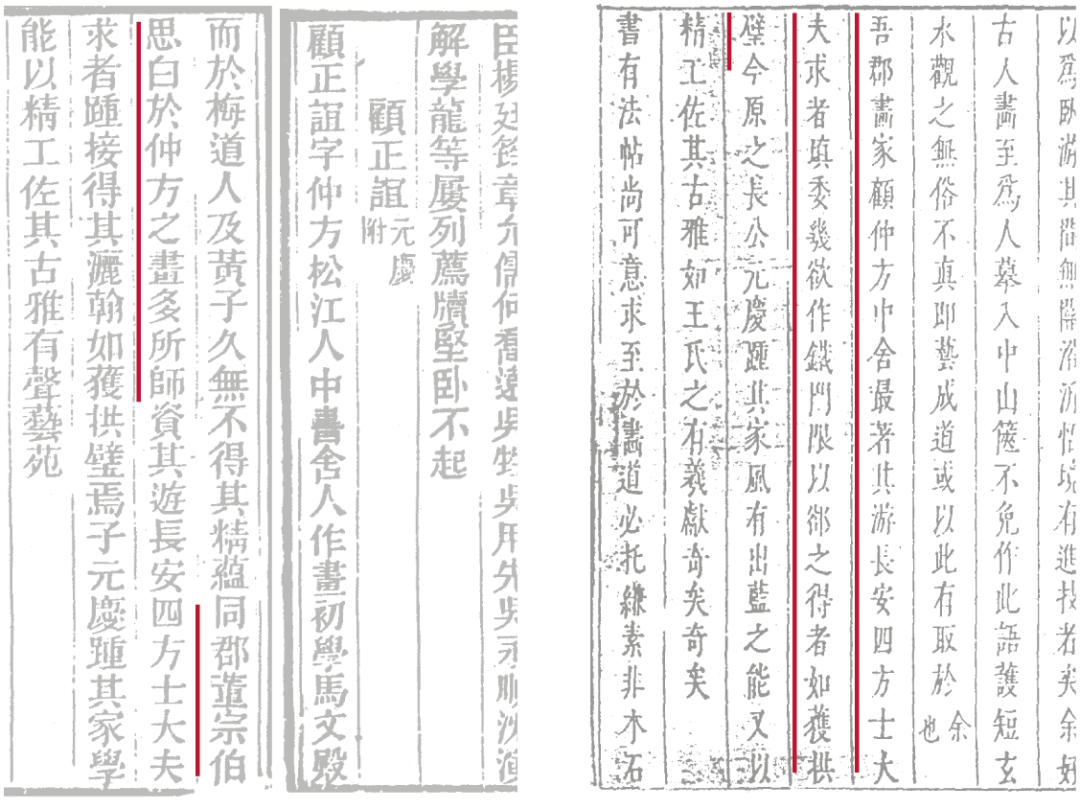 臣楊廷章允儒何喬遠吳甡吳用先吳順沈演
解學龍等屢列薦牘堅卧不起
顧正誼元慶附
顧正誼字仲方松江人中書舍人作畫初學馬文殿
而於梅道人及黃子久無不得其精蘊同郡董宗伯
思白於仲方之畫多所師資其遊長安四方士大夫
求者踵接得其灑翰如獲拱璧焉子元慶踵其家學
能以精工佐其古雅有聲藝苑
以爲卧游其間無有進技者矣余好
古人畫至爲人摹入中山篋不免作此語護短玄
水觀之無俗不真即藝成道或以此有取於余也
吾郡畫家顧仲方中舍最著其游長安四方士大
夫求者填委幾欲作鐵門限以郤之得者如獲拱
璧今原之長公元慶踵其家風有出藍之能又以
精工佐其古雅如王氏之有羲獻奇矣奇矣
書有法帖尚可意求至於畫道必托縑素非木石